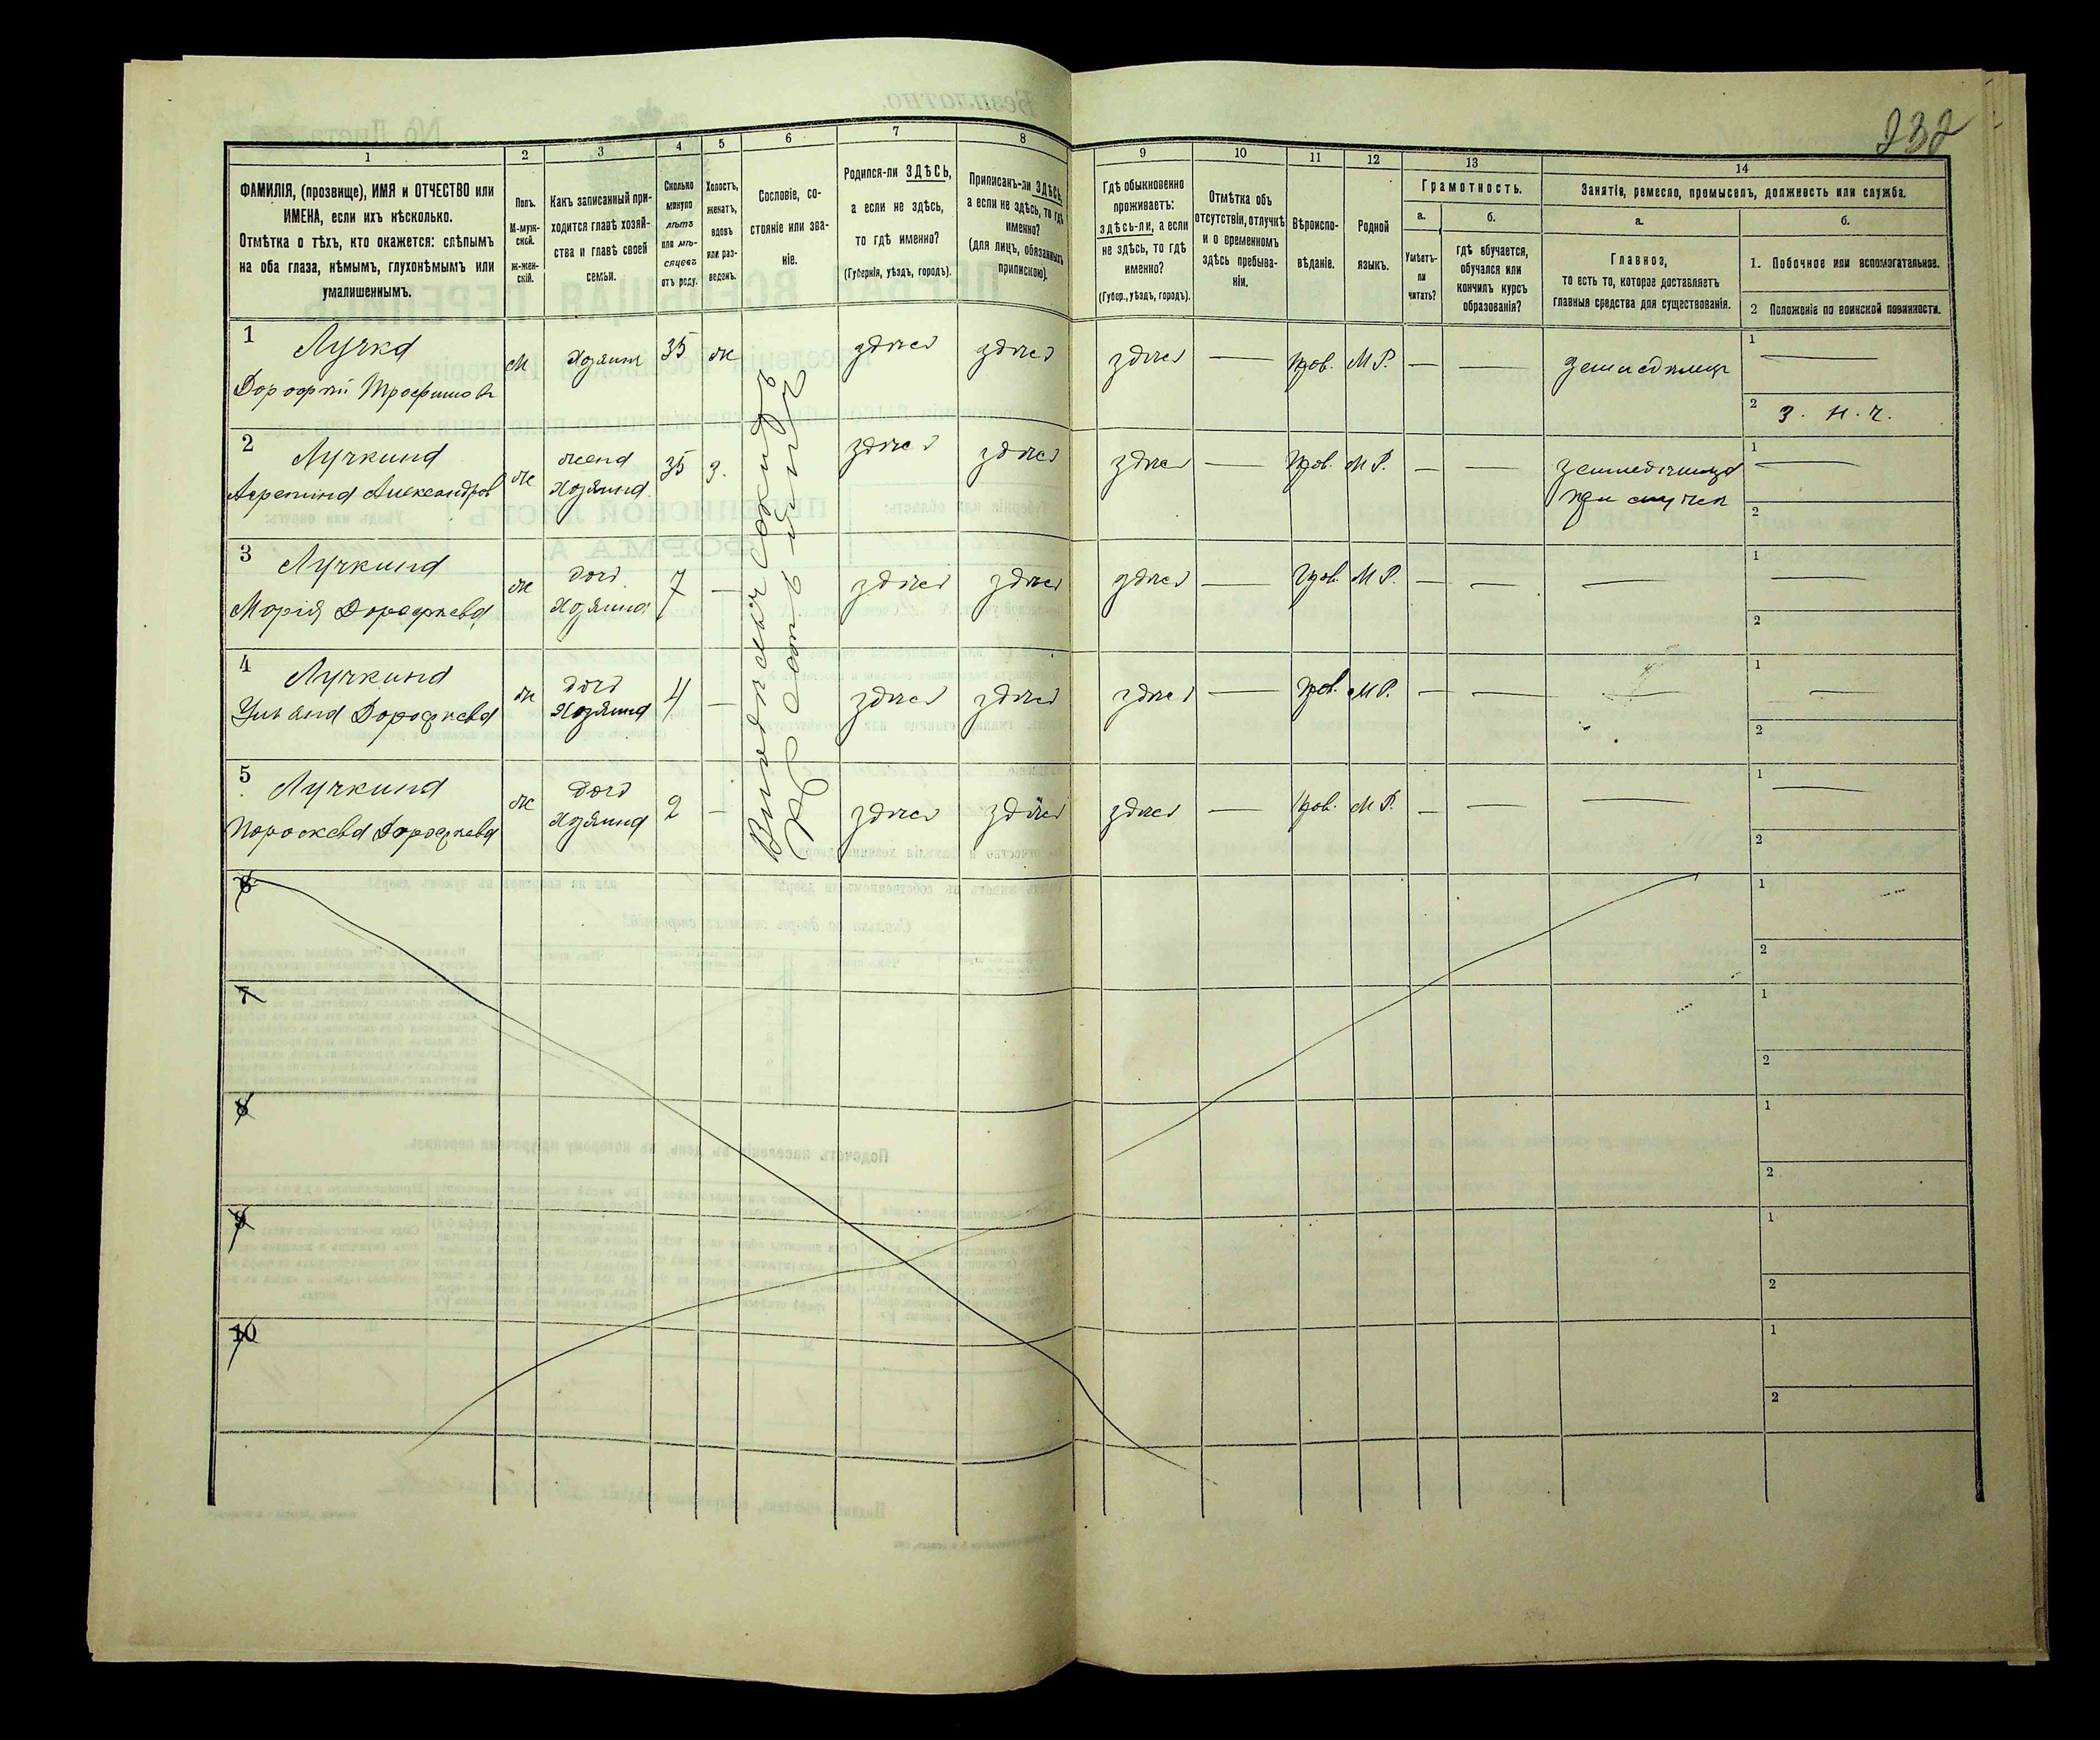 232
1
2
3
4
5
6
7
8
9
10
11
12
13
14
ФАМИЛІЯ, (прозвище), ИМЯ и ОТЧЕСТВО или
ИМЕНА, если ихъ нѣсколько.
Отмѣтка о тѣхъ, кто окажется: слѣпымъ
на оба глаза, нѣмымъ, глухонѣмымъ или
умалишеннымъ.
Полъ.
М-муж-
ской.
Ж-жен-
скій.
Какъ записанный при-
ходится главѣ хозяй-
ства и главѣ своей
семьи.
Сколько
минуло
лѣтъ
или мѣ-
сяцевъ
отъ роду.
Холостъ,
женатъ,
вдовъ
или раз-
веденъ.
Сословіе, со-
стояніе или зва-
ніе.
Родился-ли ЗДѢСЬ,
а если не здѣсь,
то гдѣ именно?
(Губернія, уѣздъ, городъ).
Приписанъ-ли ЗДѢСЬ,
а если не здѣсь, то гдѣ
именно?
(для лицъ, обязанныхъ
припискою).
Гдѣ обыкновенно
проживаетъ:
здѣсь-ли, а если
не здѣсь, то гдѣ
именно?
(Губер., уѣздъ, городъ).
Отмѣтка объ
отсутствіи, отлучкѣ
и о временномъ
здѣсь пребыва-
ніи.
Вѣроиспо-
вѣданіе.
Родной
языкъ.
Грамотность.
а.
Умѣетъ-
ли
читать?
б.
гдѣ обучается,
обучался или
кончилъ курсъ
образованія?
Занятіе, ремесло, промыселъ, должность или служба.
а.
Главное,
то есть то, которое доставляетъ
главныя средства для существованія.
б.
1. Побочное или вспомогательное.
2 Положеніе по воинской повинности.
1 Лучка
Дорофѣй Трофимовъ
м
Хозяинъ
35
ж
здѣсь
здѣсь
здѣсь
—
Прав.
М Р.
—
—
земледѣлецъ
1 —
2 З. Н. Ч.
2 Лучкина
Агрепина Александров
ж
жена
Хозяина
35
З.
здѣсь
здѣсь
здѣсь
—
Прав.
М Р.
—
—
1 —
2
3 Лучкина
Марія Дорофѣева
ж
дочь
Хозяина
7
—
здѣсь
здѣсь
здѣсь
—
Прав.
М Р.
—
—
—
1 —
2
4 Лучкина
Ульяна Дорофѣева
ж
дочь
Хозяина
4
—
здѣсь
здѣсь
здѣсь
—
Прав.
М Р.
—
—
—
1 —
2
5 Лучкина
Пораскева Дорофѣева
ж
дочь
Хозяина
2
—
здѣсь
здѣсь
здѣсь
—
Прав.
М Р.
—
—
—
1 —
2
6
1
2
7
1
2
8
1
2
9
1
2
10
1
2